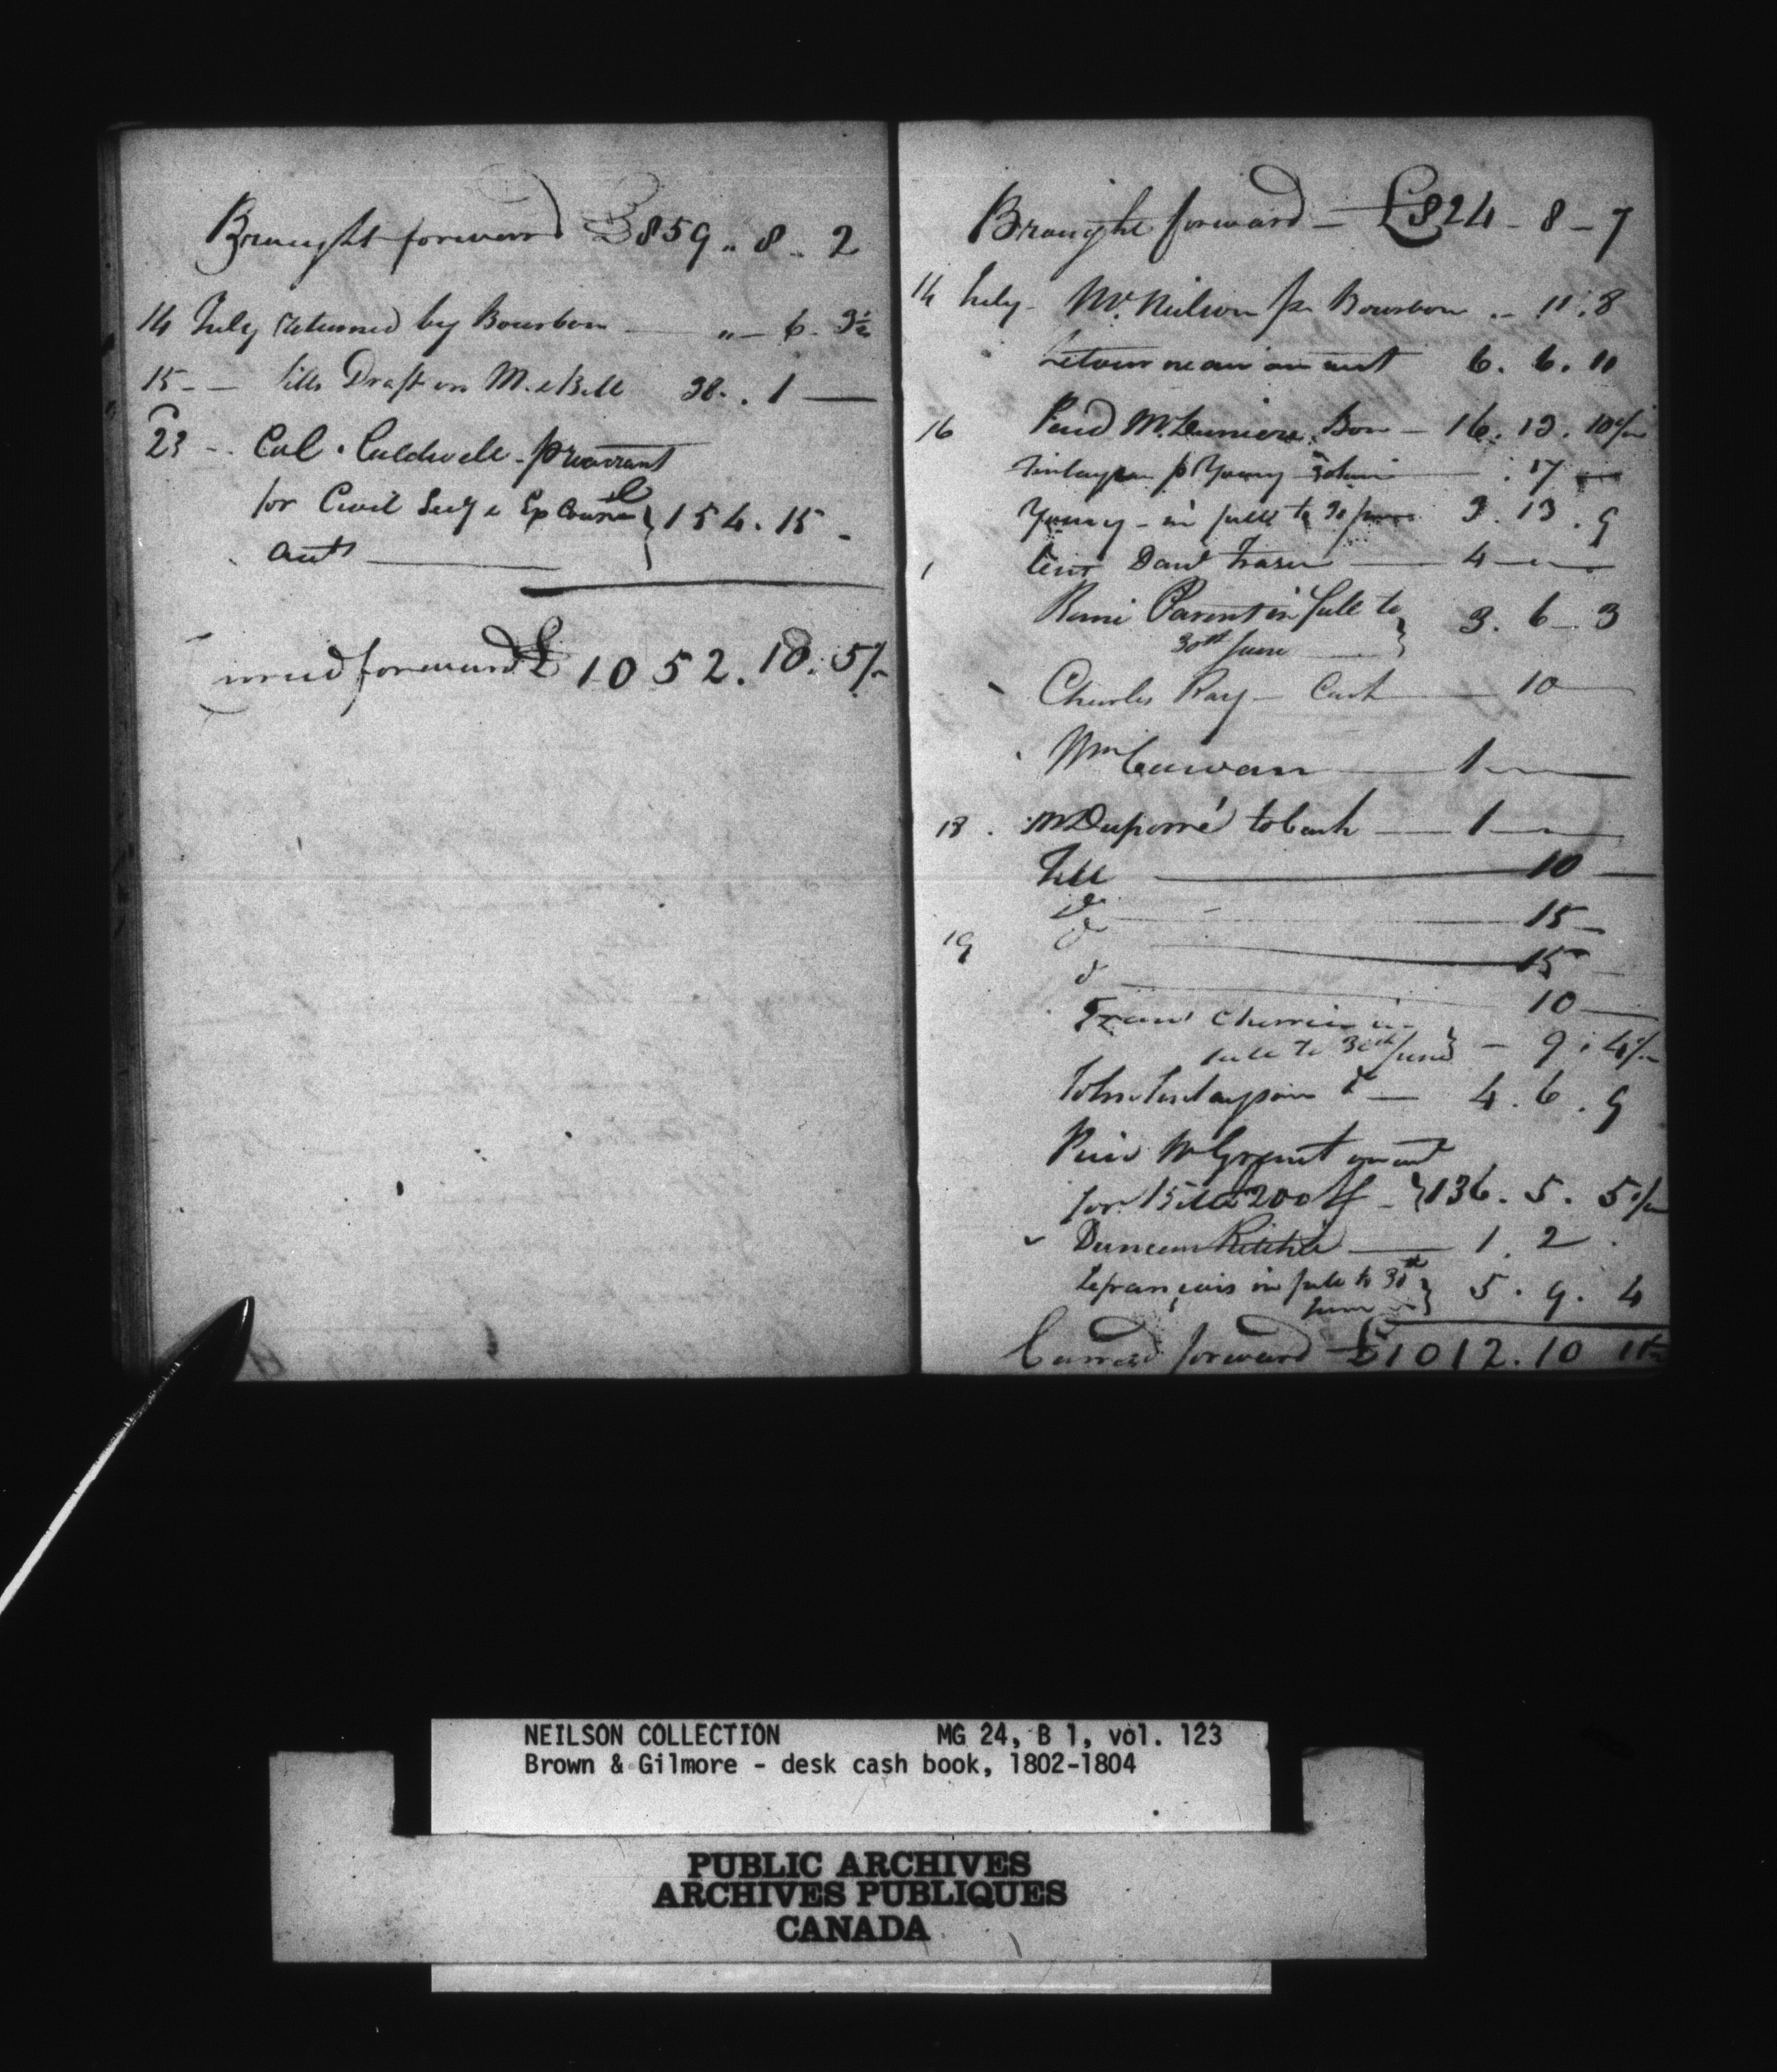 Brought forward £859 .. 8 .. 2
14 July returned by Bourbon — „ — 6 . 3½
15 - — Draft on M. & Bell 38 . . 1 —
23 - . Col. Caldwell - p warrant
for Civil Secy & Ex Council } 154 . 15 -
acct
forward £ 1052 . 10 . 5½
Brought forward — £824 - 8 - 7
14 July - Mr. Neilson p Bourbon .. - 11 . 8
Letourneau on acct 6 . 6 . 11
16 Paid Mr. Bon — 16 . 13 . 10½
Finlayson p Young — . 17
Young - in full to 30 June 3 . 13 . 9
David Fraser — 4 — —
Remi Parent in full to } 3 . 6 - 3
30th June
Charles Ray — Cash — 10 —
Wm Cowan — 1 . — —
18 . Mr Duporré to Cash — 1 — —
Till — 10 —
do — 15 —
19 do — 15 —
do — 10 —
Cherrier in } — 9 : 4½
full to 30th June
John Finlayson do — 4 . 6 . 9
Paid Mr Grant on acct
for Bill 200 — } 136 . 5 . 5½
Duncan Ritchie — 1 . 2 .
Lefrançais in full to 30th } 5 . 9 . 4
June
Carried forward £1012 . 10 11½
NEILSON COLLECTION MG 24, B 1, vol. 123
Brown & Gilmore - desk cash book, 1802-1804
PUBLIC ARCHIVES
ARCHIVES PUBLIQUES
CANADA